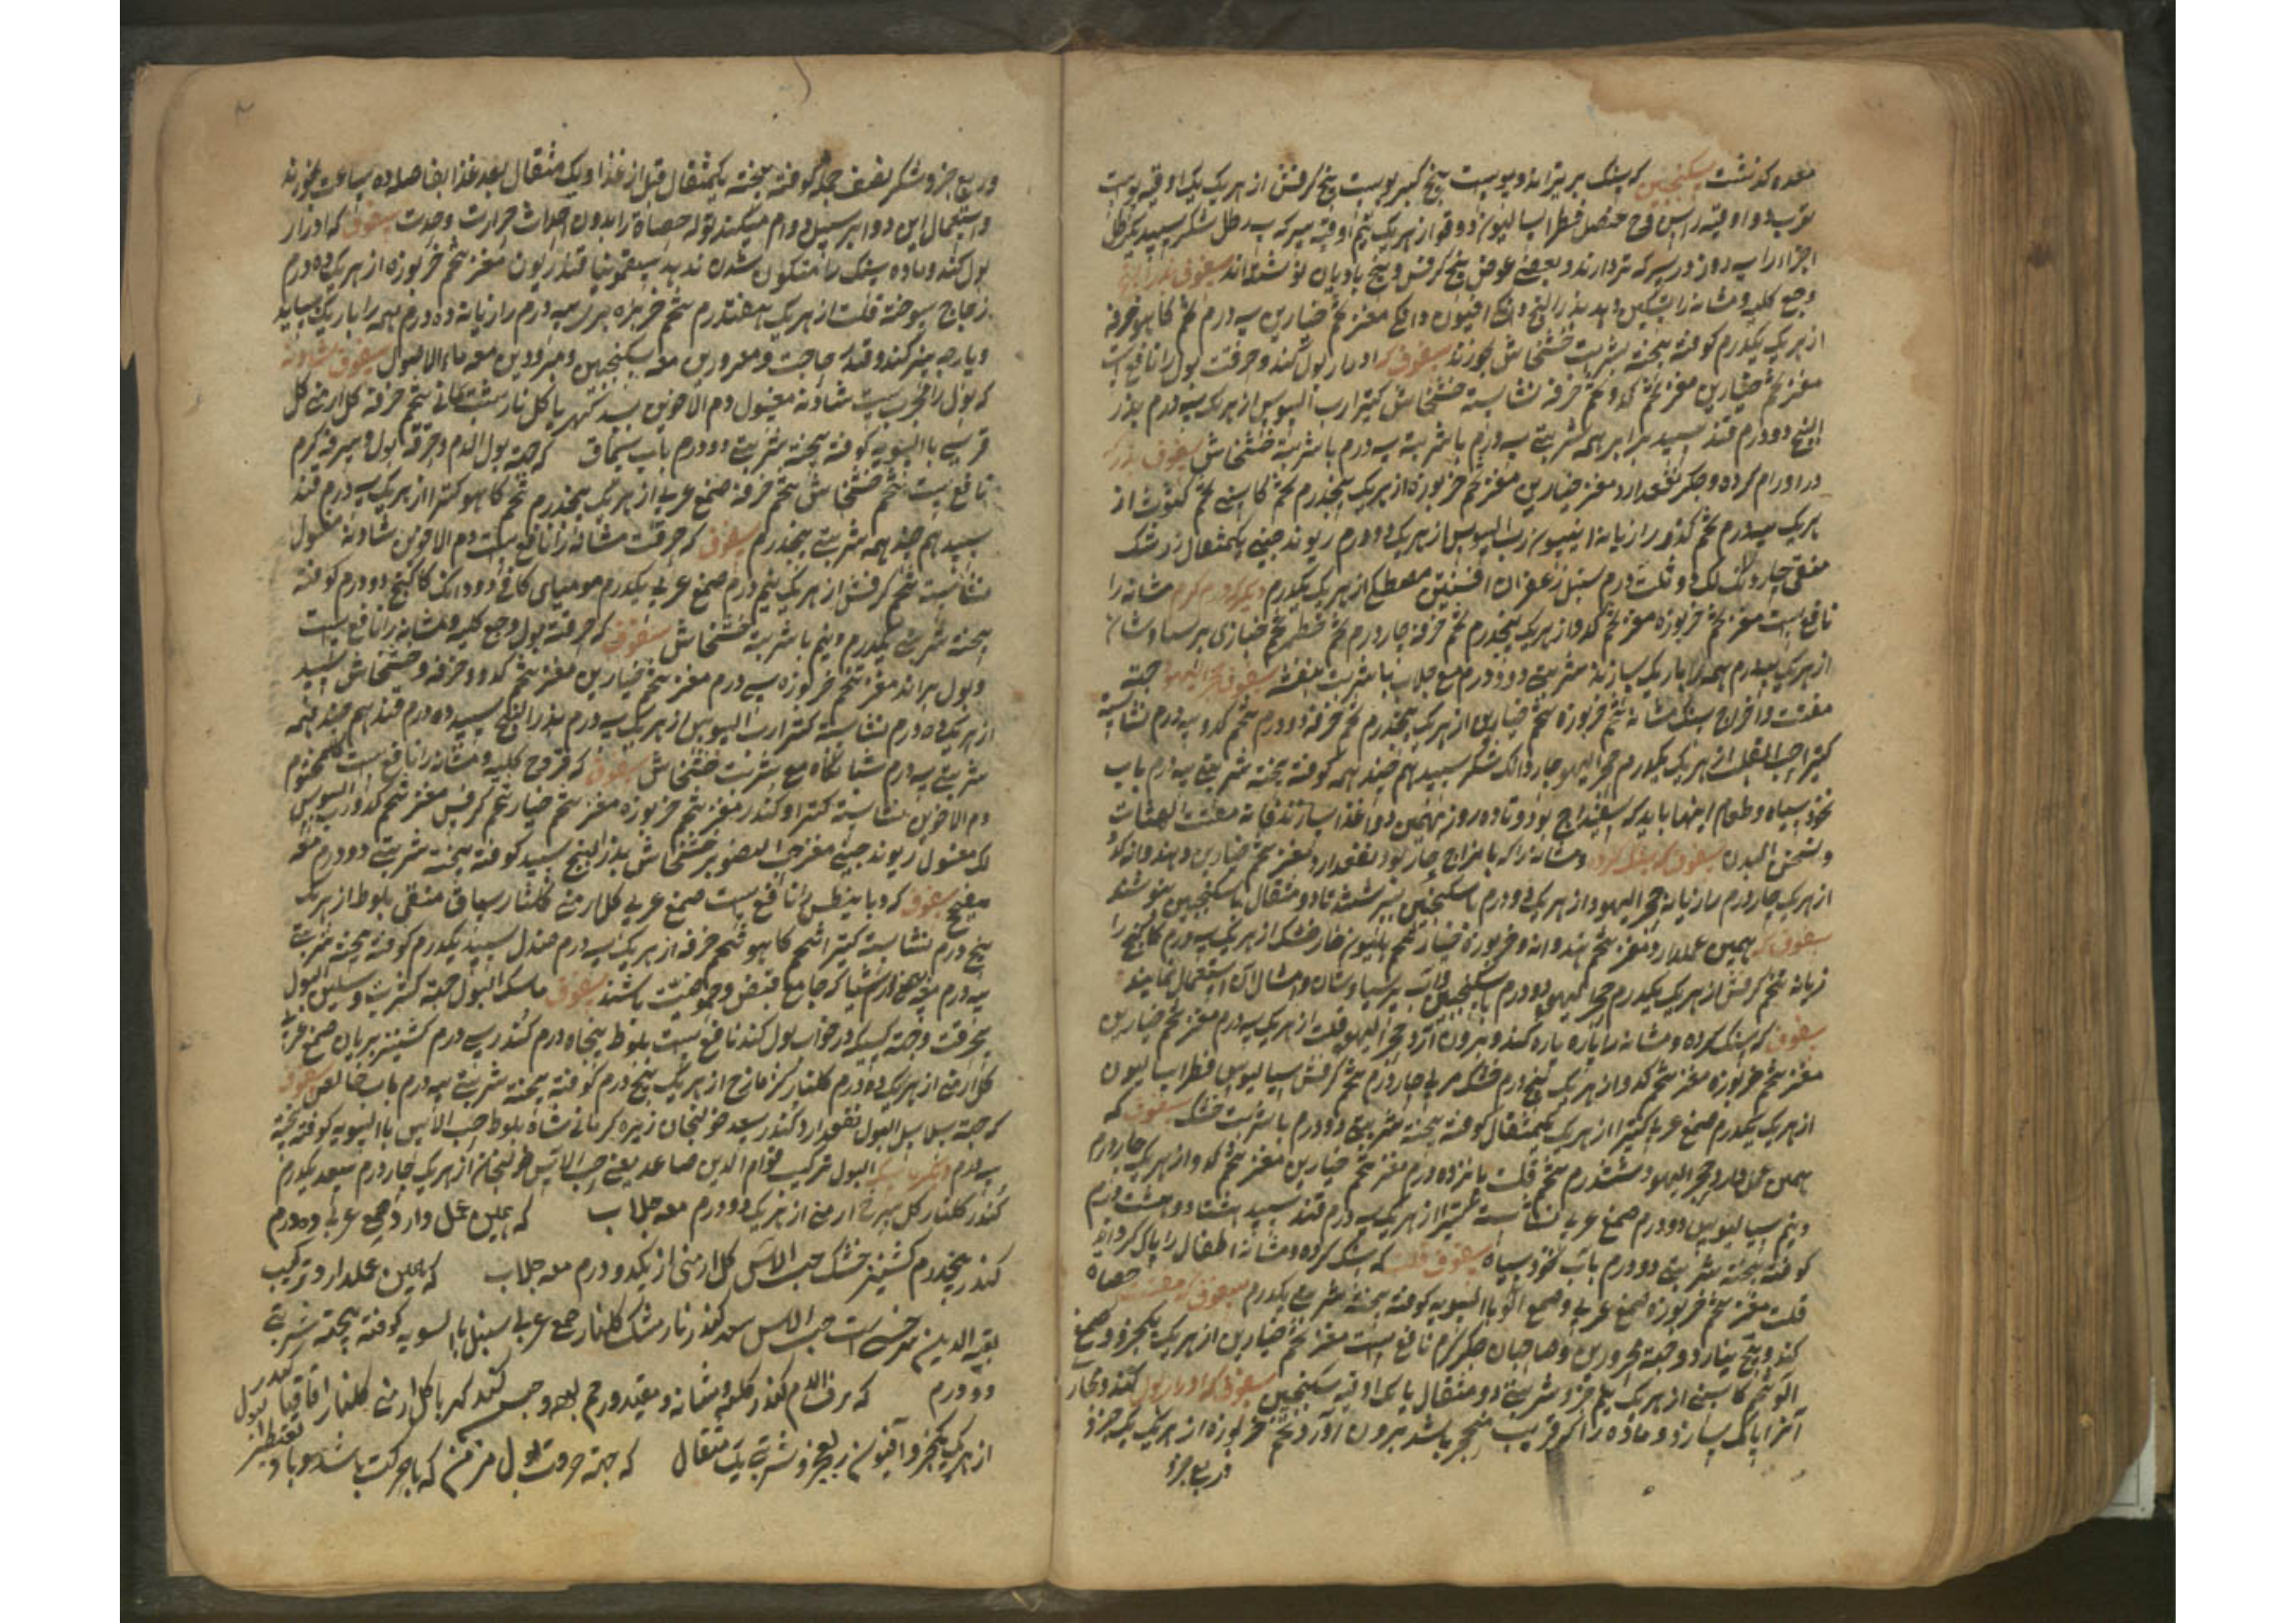 معده گذشت سکنجبین که سنگ بریزاند و پوست بیخ کبر پوست بیخ کرفس از هر یک یک اوقیه پوست
ترب دو اوقیه عنصل فطراسالیون دوقو از هر یک نیم اوقیه سرکه سه رطل شکر سپید یکرطل
اجزا را سه روز در سرکه تر دارند و بعضی عوض بیخ کرفس و بیخ بادیان نوشته‌اند سفوف بذر البنج
وجع کلیه و مثانه را تسکین دهد بذر البنج دانگی افیون دانگی مغز تخم خیارین سه درم تخم کاهو خرفه
از هر یک یکدرم کوفته بیخته بشربت خشخاش خورند سفوف که ادرار بول کند و حرقت بول را نافع است
مغز تخم خیارین مغز تخم کدو تخم خرفه نشاسته خشخاش کتیرا رب السوس از هر یک سه درم بذر
البنج دو درم قند سپید برابر همه شربتی سه درم با شربت خشخاش سفوف بذر که
در اورام کرده و جگر نفعدارد مغز خیارین مغز تخم خربوزه از هر یک پنجدرم تخم کاسنی تخم کثوث از
هر یک سه درم تخم کدو رازیانه انیسون رب السوس از هر یک دو درم ریوند چینی یکمثقال زرشک
منقی چار دانگ لک دو ثلث درم سنبل زعفران افسنتین مصطکی از هر یک یکدرم دیگر ورم گرم مثانه را
نافع است مغز تخم خربوزه مغز تخم کدو از هر یک پنجدرم تخم خرفه چار درم تخم خطمی تخم خبازی پرسیاوشان
از هر یک سه درم همه را باریک سازند شربتی دو درم مع جلاب با شربت بنفشه سفوف حجر الیهود جهة
مفتت و اخراج سنگ مثانه تخم خربوزه تخم خیارین از هر یک پنجدرم تخم خرفه دو درم تخم کدو سه درم نشاسته
کتیرا حب القلت از هر یک یکدرم حجر الیهود چار دانگ شکر سپید هم چند همه کوفته بیخته شربتی سه درم باب
نخود سیاه و طعام اینها باید که اسفیداج بود و تا ده روز همین دوا غذا سازند فانه مفتت الحصات
و مسخن البدن سفوف که سنگ کرده و مثانه را که با مزاج حار بود نفعدارد مغز تخم خیارین و هندوانه کدو
از هر یک چار درم رازیانه حجر الیهود از هر یک دو درم با سکنجبین بسرشند تا دو مثقال با سکنجبین بنوشند
سفوف که همین عملدارد مغز تخم هندوانه و خربوزه خیار تخم هلیون خارخسک از هر یک سه درم کاکنج را
زیانه تخم کرفس از هر یک یکدرم حجر الیهود دو درم با سکنجبین و آب پرسیاوشان و امثال آن استعمال نمایند
سفوف که سنگ کرده و مثانه را پاره پاره کند و بیرون آرد حجر الیهود قلت از هر یک سه درم مغز تخم خیارین
مغز تخم خربوزه مغز تخم کدو از هر یک پنج درم خسک مربی چار درم تخم کرفس سیالیوس فطراسالیون
از هر یک یکدرم صمغ عربی کتیرا از هر یک یکمثقال کوفته بیخته شربتی دو درم با شربت خسک سفوف که
همین عمل دارد حجر الیهود هشتدرم تخم قلت پانزده درم مغز تخم خیارین مغز تخم کدو از هر یک چار درم
و نیم سیالیوس دو درم صمغ عربی نشاسته کتیرا از هر یک سه درم قند سپید هشتاد و هشت درم
کوفته بیخته شربتی دو درم باب نخود سیاه سفوف قلت که سنگ کرده و مثانه اطفال را پاک گرداند
قلت مغز تخم خربوزه صمغ عربی و صمغ آلو بالسویه کوفته بیخته شربتی یکدرم سفوف که مفتت حصاة
کند و جهة محرورین و صاحبان جگر گرم نافع است مغز تخم خیارین از هر یک یکجزو و صمغ
آلو تخم کاسنی از هر یک نیم جزو شربتی دو مثقال با یک اوقیه سکنجبین سفوف که ادرار بول کند و مجار
آنرا پاک سازد و ماده را که قریب متحجر باشد بیرون آورد تخم خربوزه از هر یک یک جزو
و ربع جزو
و ربع جزو شکر نصف جمله کوفته بیخته یکمثقال قبل از غذا و یک مثقال بعد غذا بفاصله ده ساعت بخورند
و استعمال این دوا بر سبیل دوام میکند تولد حصاة را بدون احداث حرارت و حدت سفوف که ادرار
بول کند و ماده سنگ را متکون شدن ندهد سقمونیا قنطاریون مغز تخم خربوزه از هر یک ده درم
زجاج سوخته قلت از هر یک هفتدرم تخم خرپزه سه درم رازیانه ده درم همه را باریک سایند
و پارچه بیز کنند وقت حاجت و مرورین معه سکنجبین و مبرودین معه ماء الاصول سفوف شادنه
که بول را مجرب است شادنه مغسول دم الاخوین بسد کهربا گل نار شب یمانی تخم خرفه گل ارمنی گل
قرسی بالسویه کوفته بیخته شربتی دو درم باب سماق که جهة بول الدم و حرقت بول و سرفه گرم
نافع است تخم خشخاش تخم خرفه صمغ عربی از هر یک پنجدرم تخم کاهو کتیرا از هر یک سه درم قند
سپید هم چند همه شربتی پنجدرم سفوف که حرقت مثانه را نافع است دم الاخوین شادنه مغسول
نشاسته تخم کرفس از هر یک نیم درم صمغ عربی یکدرم مومیای کافی دو دانگ کاکنج دو درم کوفته
بیخته شربتی یکدرم و نیم با شربت خشخاش سفوف که حرقت بول و وجع کلیه و مثانه را نافع است
و بول براند مغز تخم خربوزه سی درم مغز تخم خیارین مغز تخم کدو و خرفه و خشخاش سپید
از هر یک ده درم نشاسته کتیرا رب السوس از هر یک سه درم بذر البنج سپید ده درم قند هم چند همه
شربتی سه درم شبانگاه مع شربت خشخاش سفوف که قروح کلیه و مثانه را نافع است گل مختوم
دم الاخوین نشاسته کتیرا و کندر مغز تخم خربوزه مغز تخم خیار تخم کرفس مغز تخم کدو رب السوس
لک مغسول ریوند چینی مغز حب الصنوبر خشخاش بذر البنج سپید کوفته بیخته شربتی دو درم معه
میفخج سفوف که دیابیطس را نافع است صمغ عربی گل ارمنی گلنار سماق منقی بلوط از هر یک
پنج درم نشاسته کتیرا تخم کاهو تخم خرفه از هر یک سه درم صندل سپید یکدرم کوفته بیخته شربت
سه درم سفوف ماسک البول جهة کثرت و سلس البول
بحرقت و جهة کسیکه در خواب بول کند نافع است بلوط پنجاه درم کندر سی درم کشنیز بریان صمغ عربی
گل ارمنی از هر یک ده درم گلنار کزمازج از هر یک پنج درم کوفته بیخته شربتی سه درم باب خالص سفوف
که جهة سلس البول نفعدارد کندر سعد خولنجان زیره کرمانی شاه بلوط حب الآس بالسویه کوفته بیخته
سه درم دیگر سلس البول ترکیب قوام الدین صاعد یعنی حب الآس خولنجان از هر یک چار درم سعد یکدرم
کندر گلنار گل سرخ ارمنی از هر یک دو درم معه جلاب که همین عمل دارد صمغ عربی ده درم
کندر پنجدرم کشنیز خشک حب الاس گل ارمنی از یک دو درم معه جلاب که همین عملدارد ترکیب
حب الاس سعد کندر نار مشک گلنار صمغ عربی سنبل بالسویه کوفته بیخته شربتی
دو درم که نزف الدم کلیه و مثانه و مقعد و رحم کهربا گل ارمنی گلنار اقاقیا کندر
از هر یک یکجزو افیون ربعجزو شربتی یک مثقال که جهة حرقت بول مزمن که با حرکت باشد و با تقطیر بول